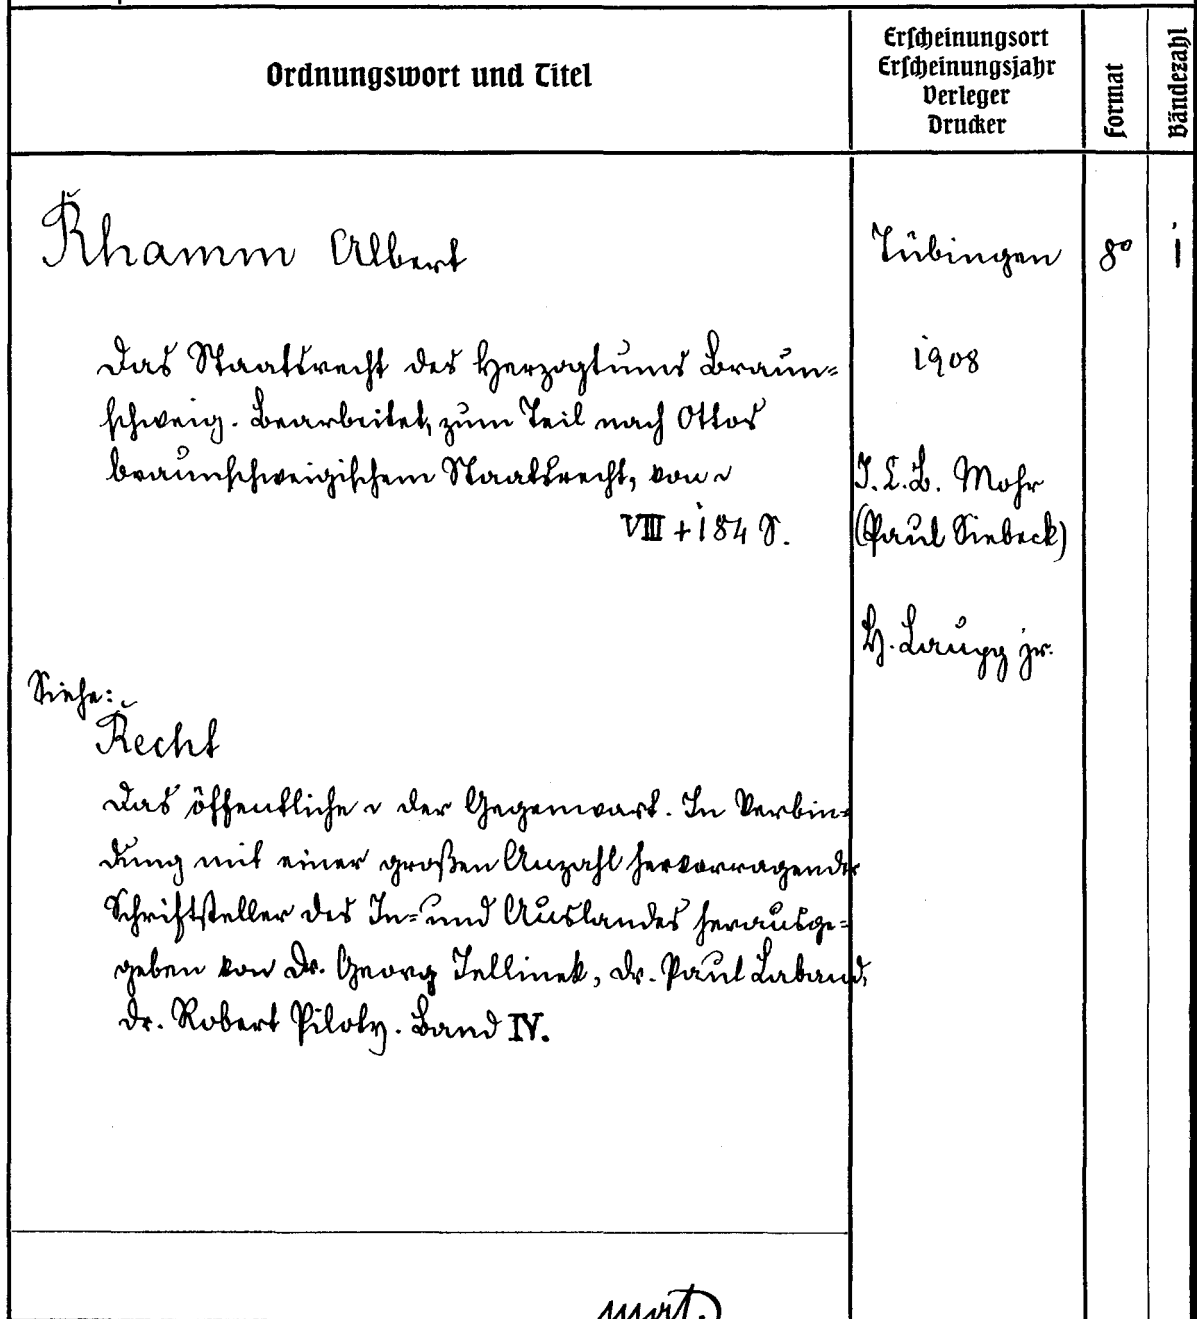 Ordnungswort und Titel
Erscheinungsort
Erscheinungsjahr
Verleger
Drucker
Format
Bändezahl
Rhamm Albert
Das Staatsrecht des Herzogtums Braun=
schweig. Bearbeitet, zum Teil nach Ottos
braunschweigischem Staatsrecht, von
VIII + 184 S.
Tübingen
1908
J.C.B. Mohr
(Paul Siebeck)
H. Laupp jr.
8°
1
Siehe:
Recht
Das öffentliche der Gegenwart. In Verbin=
dung mit einer großen Anzahl hervorragender
Schriftsteller des In= und Auslandes herausge=
geben von Dr. Georg Jellinek, Dr. Paul Laband,
Dr. Robert Piloty. Band IV.